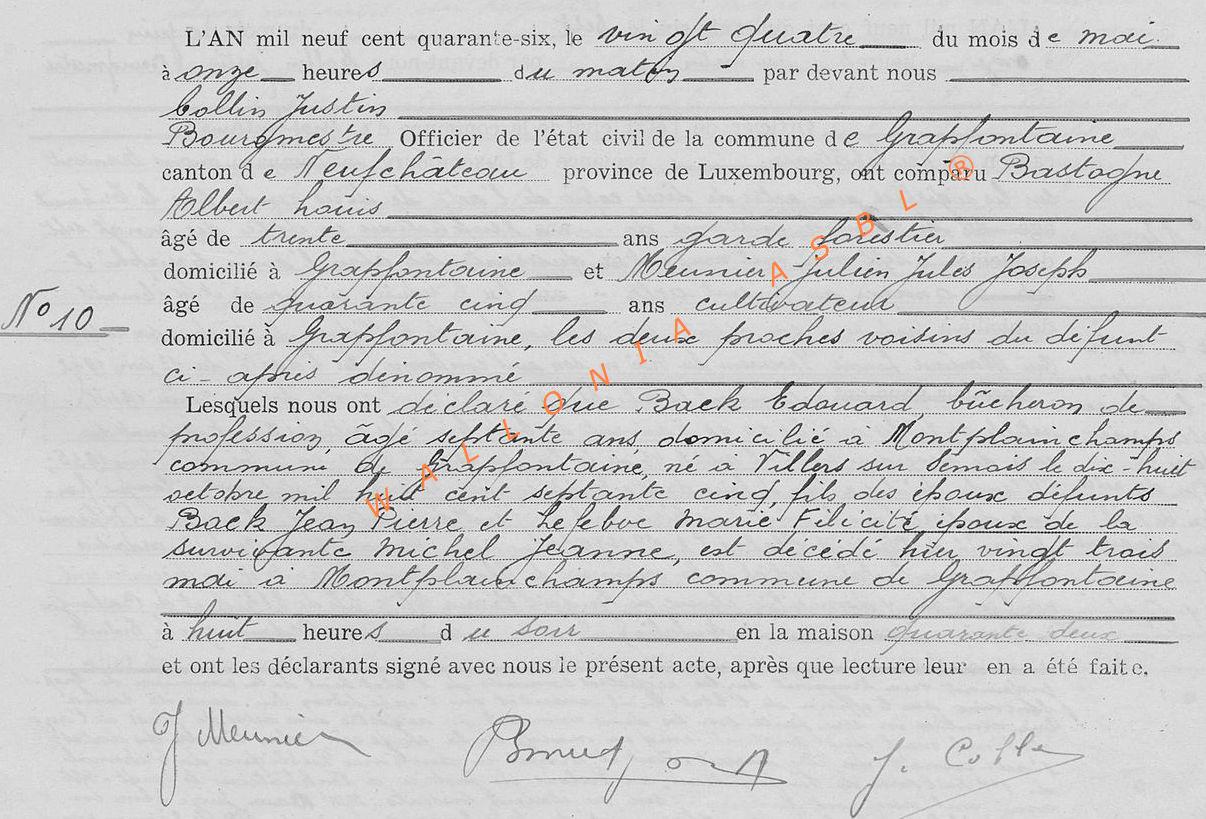 L'AN mil neuf cent quarante-six, le vingt quatre du mois de mai
à onze heures du matin par devant nous
Collin Justin
Bourgmestre Officier de l'état civil de la commune de Grapfontaine
canton de Neufchâteau province de Luxembourg, ont comparu Bastogne
Albert Louis
âgé de trente ans garde forestier
domicilié à Grapfontaine et Meunier Julien Jules Joseph
âgé de quarante cinq ans cultivateur
N° 10
domicilié à Grapfontaine, les deux proches voisins du défunt
ci-après dénommé
Lesquels nous ont déclaré que Back Edouard, bûcheron de
profession, âgé septante ans domicilié à Montplainchamps
commune de Grapfontaine, né à Villers sur Semois le dix huit
octobre mil huit cent septante cinq, fils des époux défunts
Back Jean Pierre et Lefebvc Marie Félicité époux de la
survivante Michel Jeanne, est décédé hier vingt trois
mai à Montplainchamps commune de Grapfontaine
à huit heures du soir en la maison quarante deux
et ont les déclarants signé avec nous le présent acte, après que lecture leur en a été faite.
J Meunier J. Collin
WALLONIA ASBL ®